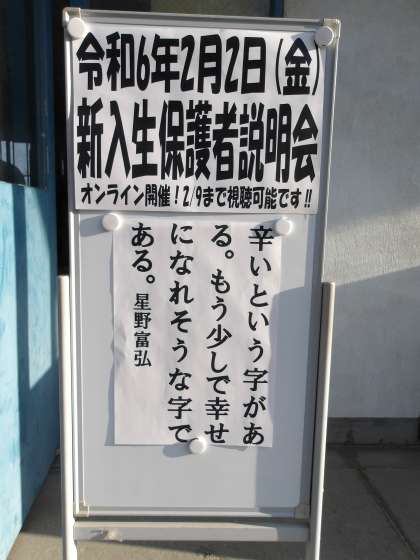 令和6年2月2日(金)
新入生保護者説明会
オンライン開催!2/9まで視聴可能です!!
辛いという字があ
る。もう少しで幸せ
になれそうな字で
ある。星野富弘